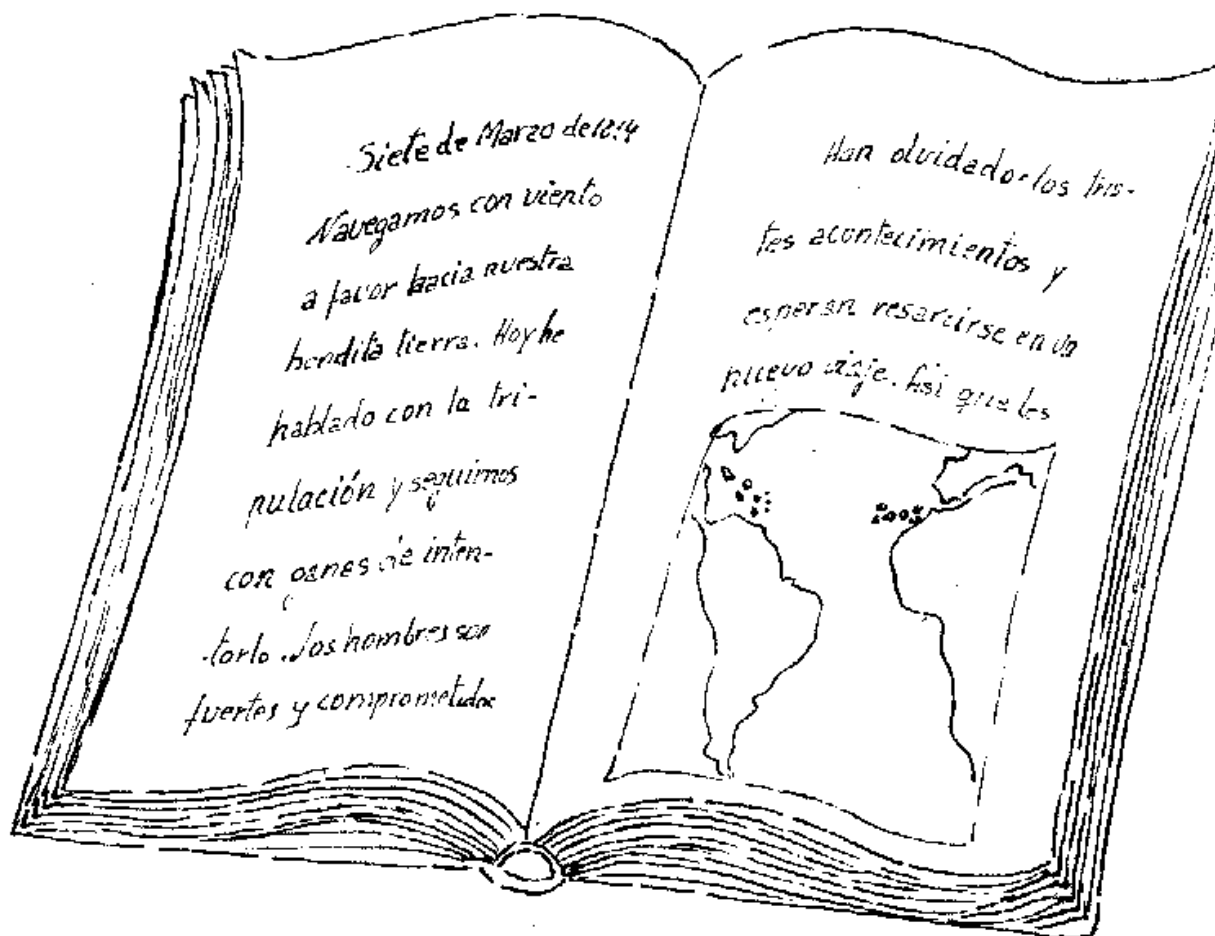 Siete de Marzo de
Navegamos con viento
a favor hacia nuestra
bendita tierra. Hoy he
hablado con la tri-
pulación y seguimos
con ganas de inten-
tarlo. Los hombres son
fuertes y comprometidos
Han olvidado los tris-
tes acontecimientos y
esperan resarcirse en un
nuevo viaje. Asi que les